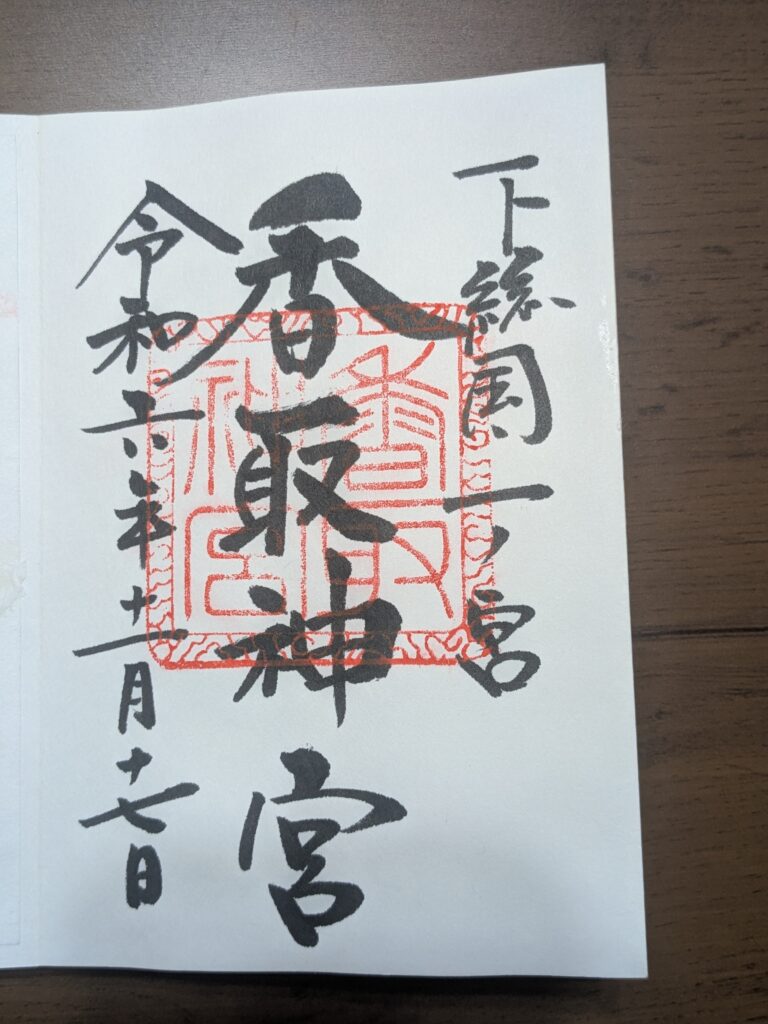 下総国一ノ宮
香取神宮
令和六年十一月十七日
香取神宮